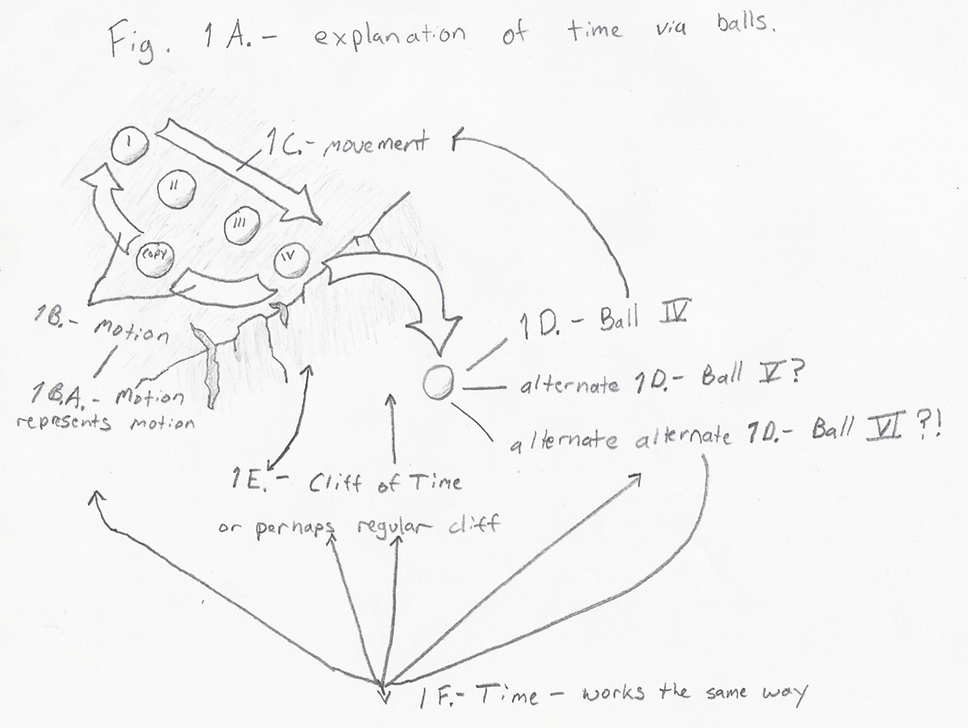 Fig. 1A.- explanation of time via balls.
I
1C.- movement
II
III
COPY
IV
1B.- Motion
1D.- Ball IV
alternate 1D.- Ball V?
1B.A.- Motion
represents motion
alternate alternate 1D.- Ball VI?!
1E.- Cliff of Time
or perhaps regular cliff
1F.- Time - works the same way